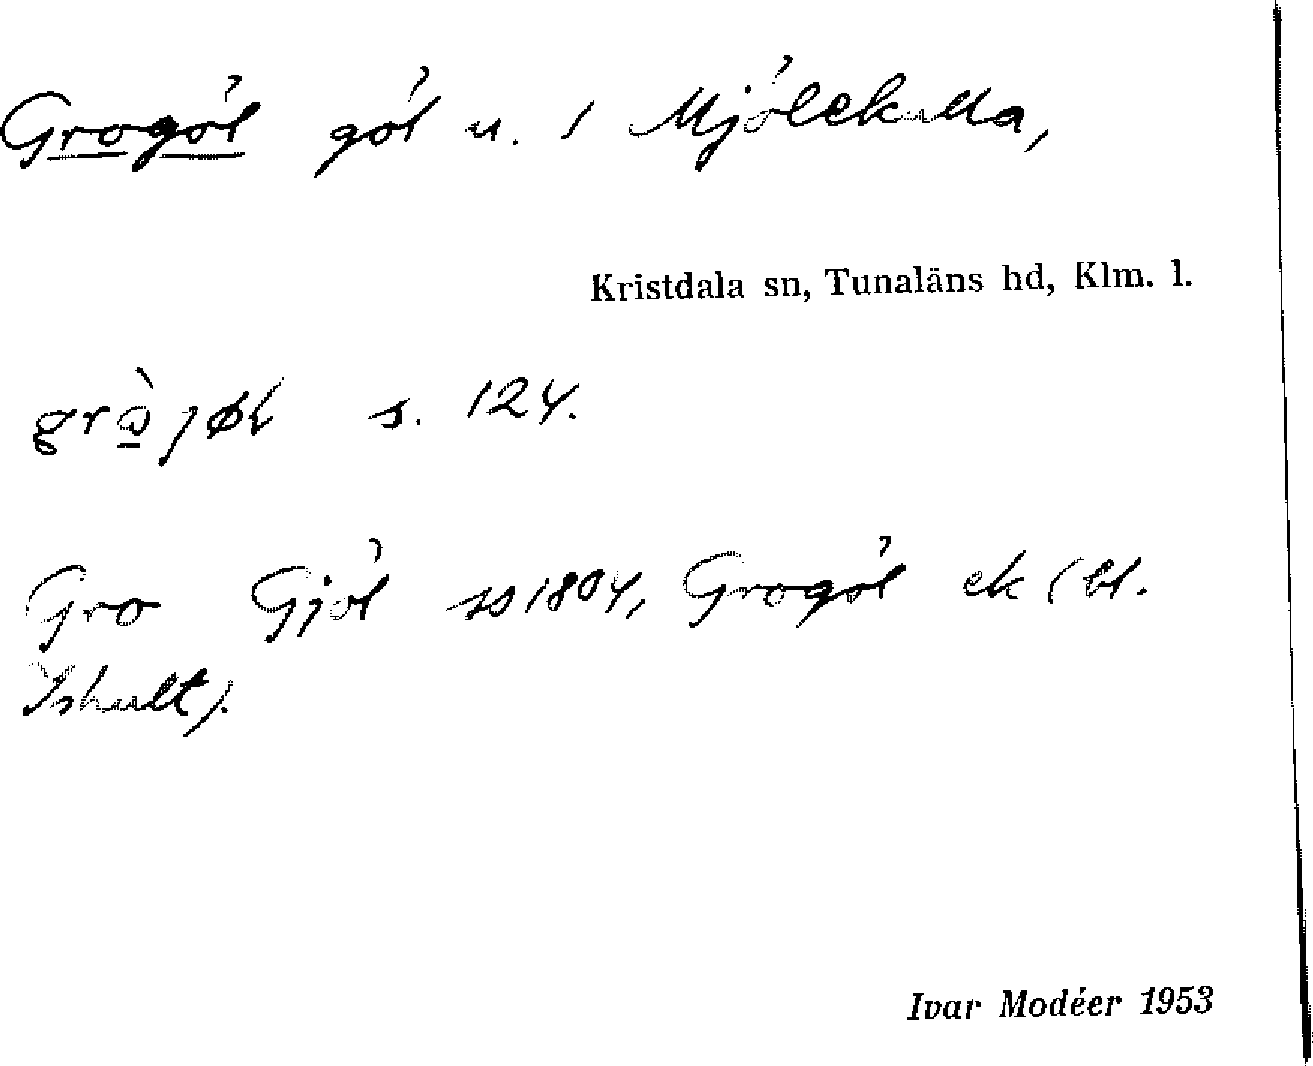 Grogöl göl u. / Mjölekulla,
Kristdala sn, Tunaläns hd, Klm. l.
s. 124.
Gro Gjöl 1804, Grogöl ek (bl.
Ishult).
Ivar Modéer 1953